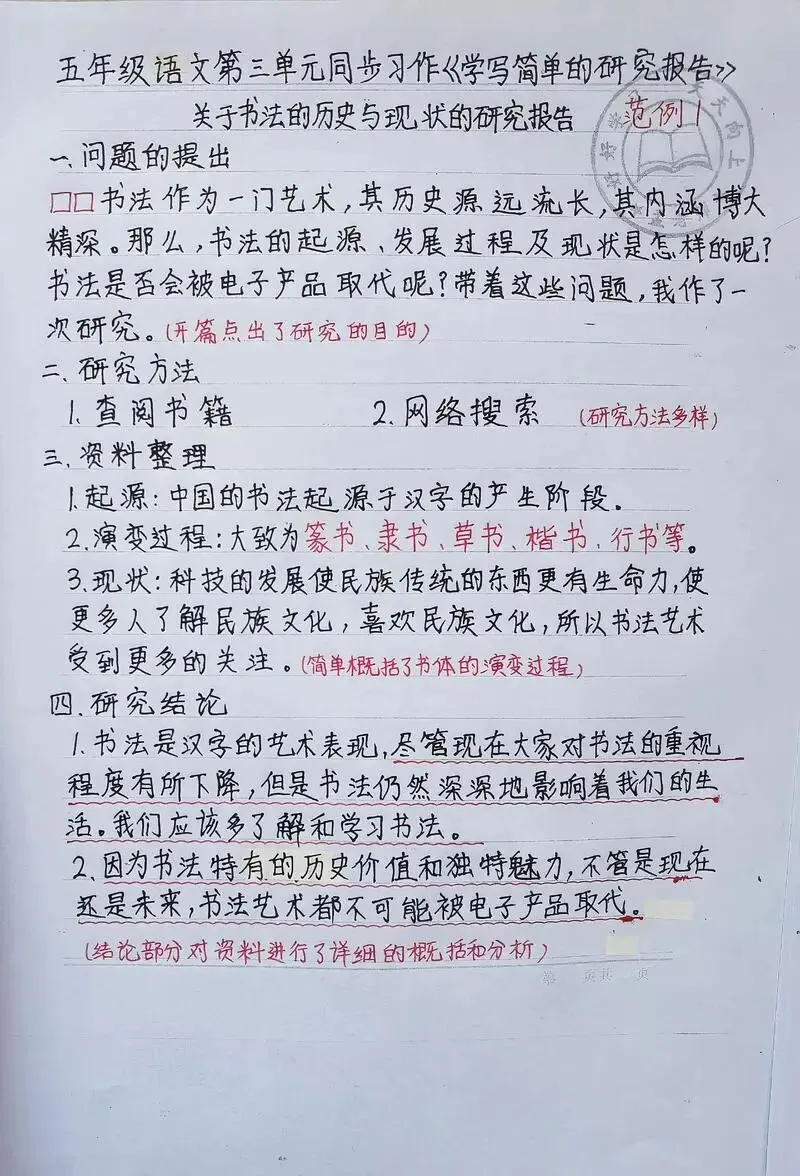 五年级语文第三单元同步习作《学写简单的研究报告》
关于书法的历史与现状的研究报告 范例1
好好学 天天向上
一.问题的提出
□□书法作为一门艺术,其历史源远流长,其内涵博大
精深。那么,书法的起源、发展过程及现状是怎样的呢?
书法是否会被电子产品取代呢?带着这些问题,我作了一
次研究。(开篇点出了研究的目的)
二.研究方法
1.查阅书籍 2.网络搜索 (研究方法多样)
三.资料整理
1.起源:中国的书法起源于汉字的产生阶段。
2.演变过程:大致为篆书、隶书、草书、楷书、行书等。
3.现状:科技的发展使民族传统的东西更有生命力,使
更多人了解民族文化,喜欢民族文化,所以书法艺术
受到更多的关注。(简单概括了书体的演变过程)
四.研究结论
1.书法是汉字的艺术表现,尽管现在大家对书法的重视
程度有所下降,但是书法仍然深深地影响着我们的生
活。我们应该多了解和学习书法。
2.因为书法特有的历史价值和独特魅力,不管是现在
还是未来,书法艺术都不可能被电子产品取代。
(结论部分对资料进行了详细的概括和分析)
第 页共 页